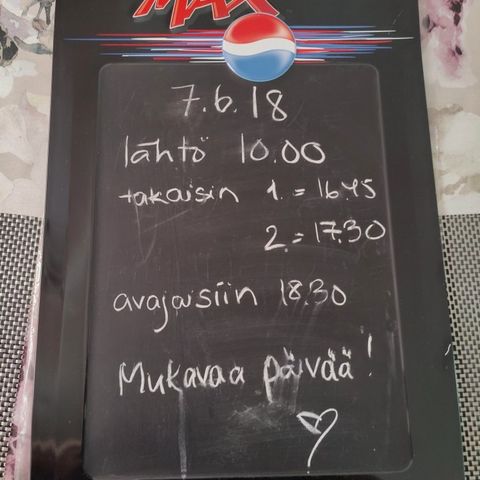 MAX
7.6.18
lähtö 10.00
takaisin 1. = 16.45
2. = 17.30
avajaisiin 18.30
Mukavaa päivää!